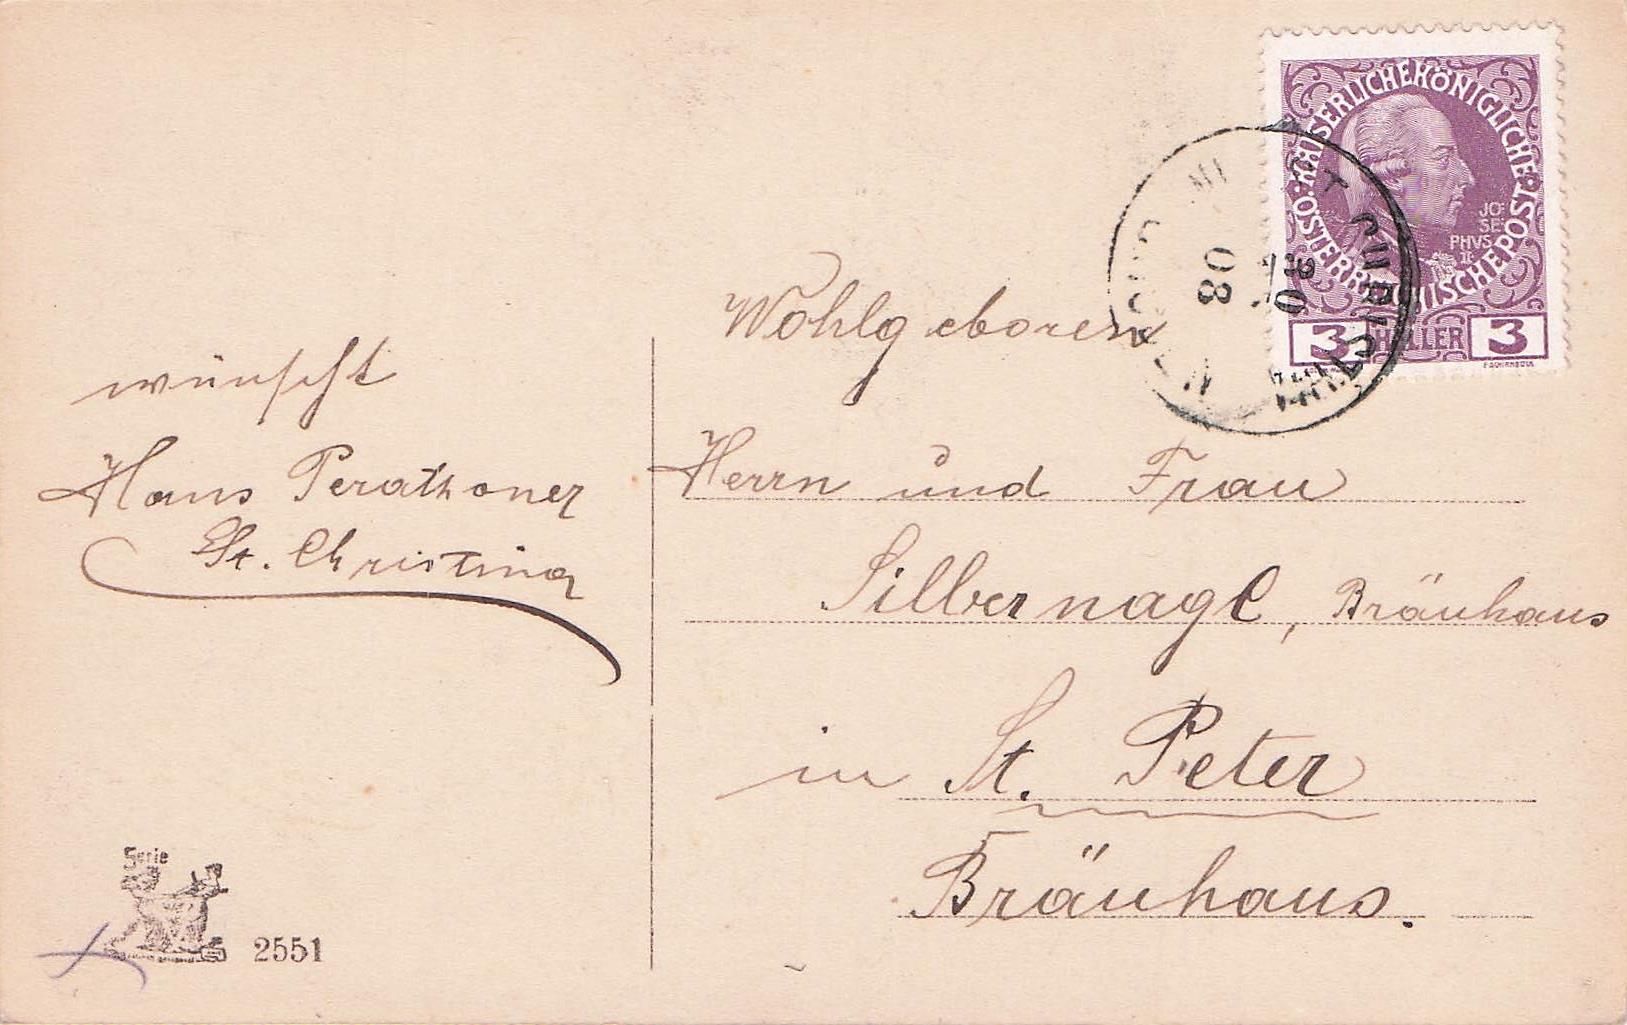 wünscht
Hans Perathoner
St. Christina
Serie
2551
ÖSTERREICHISCHE POST KAISERLICHE KÖNIGLICHE
JO
SE
PHVS
II
3 HELLER 3
ST CHRISTINA
30
08
Wohlgeboren
Herrn und Frau
Silbernagl, Bräuhaus
in St. Peter
Bräuhaus.